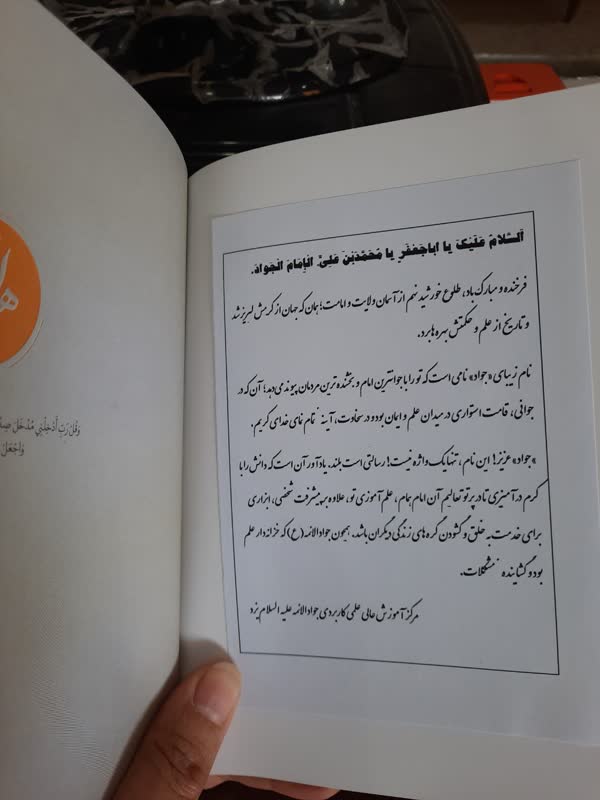 السَّلامُ عَلَیْکَ یا اَباجَعْفَرٍ یا مُحَمَّدَبْنَ عَلِیٍّ، الْاِمَامَ الْجَوادَ.
فرخنده و مبارک باد، طلوع خورشید نهم از آسمان ولایت و امامت؛ همان که جهان از کرمش لبریز شد
و تاریخ از علم و حکمتش بهره ها برد.
نام زیبای «جواد» نامی است که تو را با جوانترین امام و بخشنده ترین مردمان پیوند می دهد؛ آن که در
جوانی، قامت استواری در میدان علم و ایمان بود و در سخاوت، آینه تمام نمای خدای کریم.
«جواد» عزیز! این نام، تنها یک واژه نیست؛ رسالتی است بلند. یادآور آن است که دانش را با
کرم در آمیزی تا در پرتو تعالیم آن امام همام، علم آموزی تو، علاوه بر پیشرفت شخصی، ابزاری
برای خدمت به خلق و گشودن گره های زندگی دیگران باشد. همچون جوادالائمه (ع) که خزانه دار علم
بود و گشاینده مشکلات.
مرکز آموزش عالی علمی کاربردی جوادالائمه علیه السلام یزد
وَقُلْ رَبِّ أَدْخِلْنِي مُدْخَلَ
وَاجْعَلْ